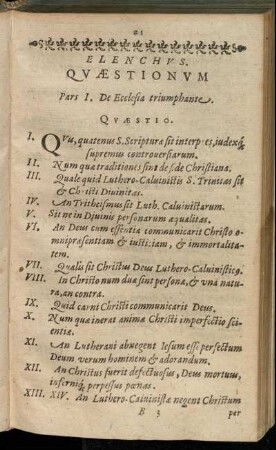 21
ELENCHVS.
QVÆSTIONVM
Pars I. De Ecclesia triumphante.
QVÆSTIO.
I. QVis, quatenus S. Scripturæ sit interpres, iudexq́;
supremus controuersiarum.
II. Num quæ traditiones sint de fide Christiana.
III. Quale quid Luthero-Caluinistis S. Trinitas sit
& Christi Diuinitas.
IV. An Tritheismus sit Luth. Caluinistarum.
V. Sit ne in Diuinis personarum æqualitas.
VI. An Deus cum essentia communicarit Christo o-
mnipræsentiam & iustitiam, & immortalita-
tem.
VII. Qualis sit Christus Deus Luthero-Caluinisticꝰ.
VIII. In Christo num duæ sint personæ, & vna natu-
ra, an contra.
IX. Quid carni Christi communicarit Deus.
X. Num quæ inerat animæ Christi imperfectio sci-
entiæ.
XI. An Lutherani abnegent Iesum esse perfectum
Deum verum hominem & adorandum.
XII. An Christus fuerit defectuosus, Deus mortuus,
inferniq́; perpessus pœnas.
XIII. XIV. An Luthero-Caluinistæ negent Christum
B 3 per